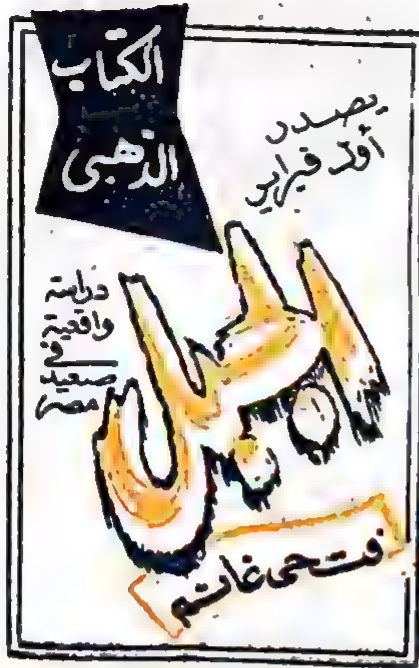 الكتاب
الذهبى
يصدر
أول فبراير
الجبل
دراسة
واقعية
فى
صعيد
مصر
فتحى غانم